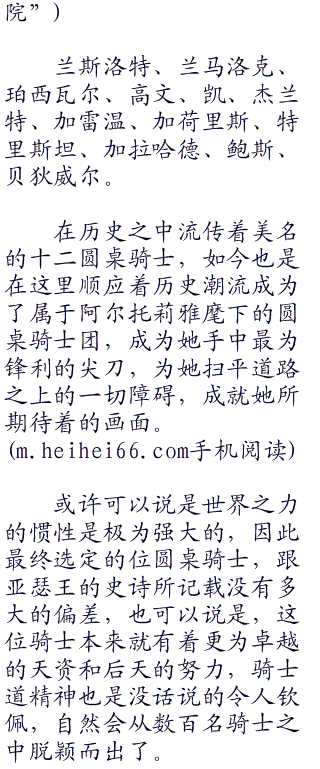 院”)
兰斯洛特、兰马洛克、
珀西瓦尔、高文、凯、杰兰
特、加雷温、加荷里斯、特
里斯坦、加拉哈德、鲍斯、
贝狄威尔。
在历史之中流传着美名
的十二圆桌骑士，如今也是
在这里顺应着历史潮流成为
了属于阿尔托莉雅麾下的圆
桌骑士团，成为她手中最为
锋利的尖刀，为她扫平道路
之上的一切障碍，成就她所
期待着的画面。
(m.heihei66.com手机阅读)
或许可以说是世界之力
的惯性是极为强大的，因此
最终选定的位圆桌骑士，跟
亚瑟王的史诗所记载没有多
大的偏差，也可以说是，这
位骑士本来就有着更为卓越
的天资和后天的努力，骑士
道精神也是没话说的令人钦
佩，自然会从数百名骑士之
中脱颖而出了。